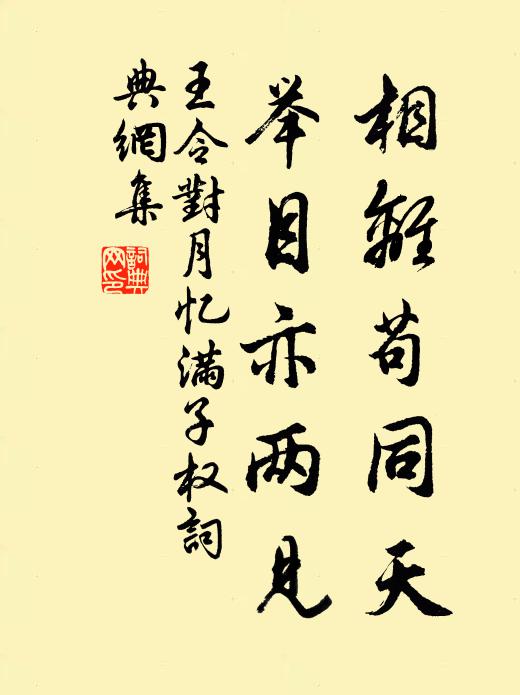 相離苟同天
举目亦两見
王令對月忆满子权詞
典網集
詞典
网印